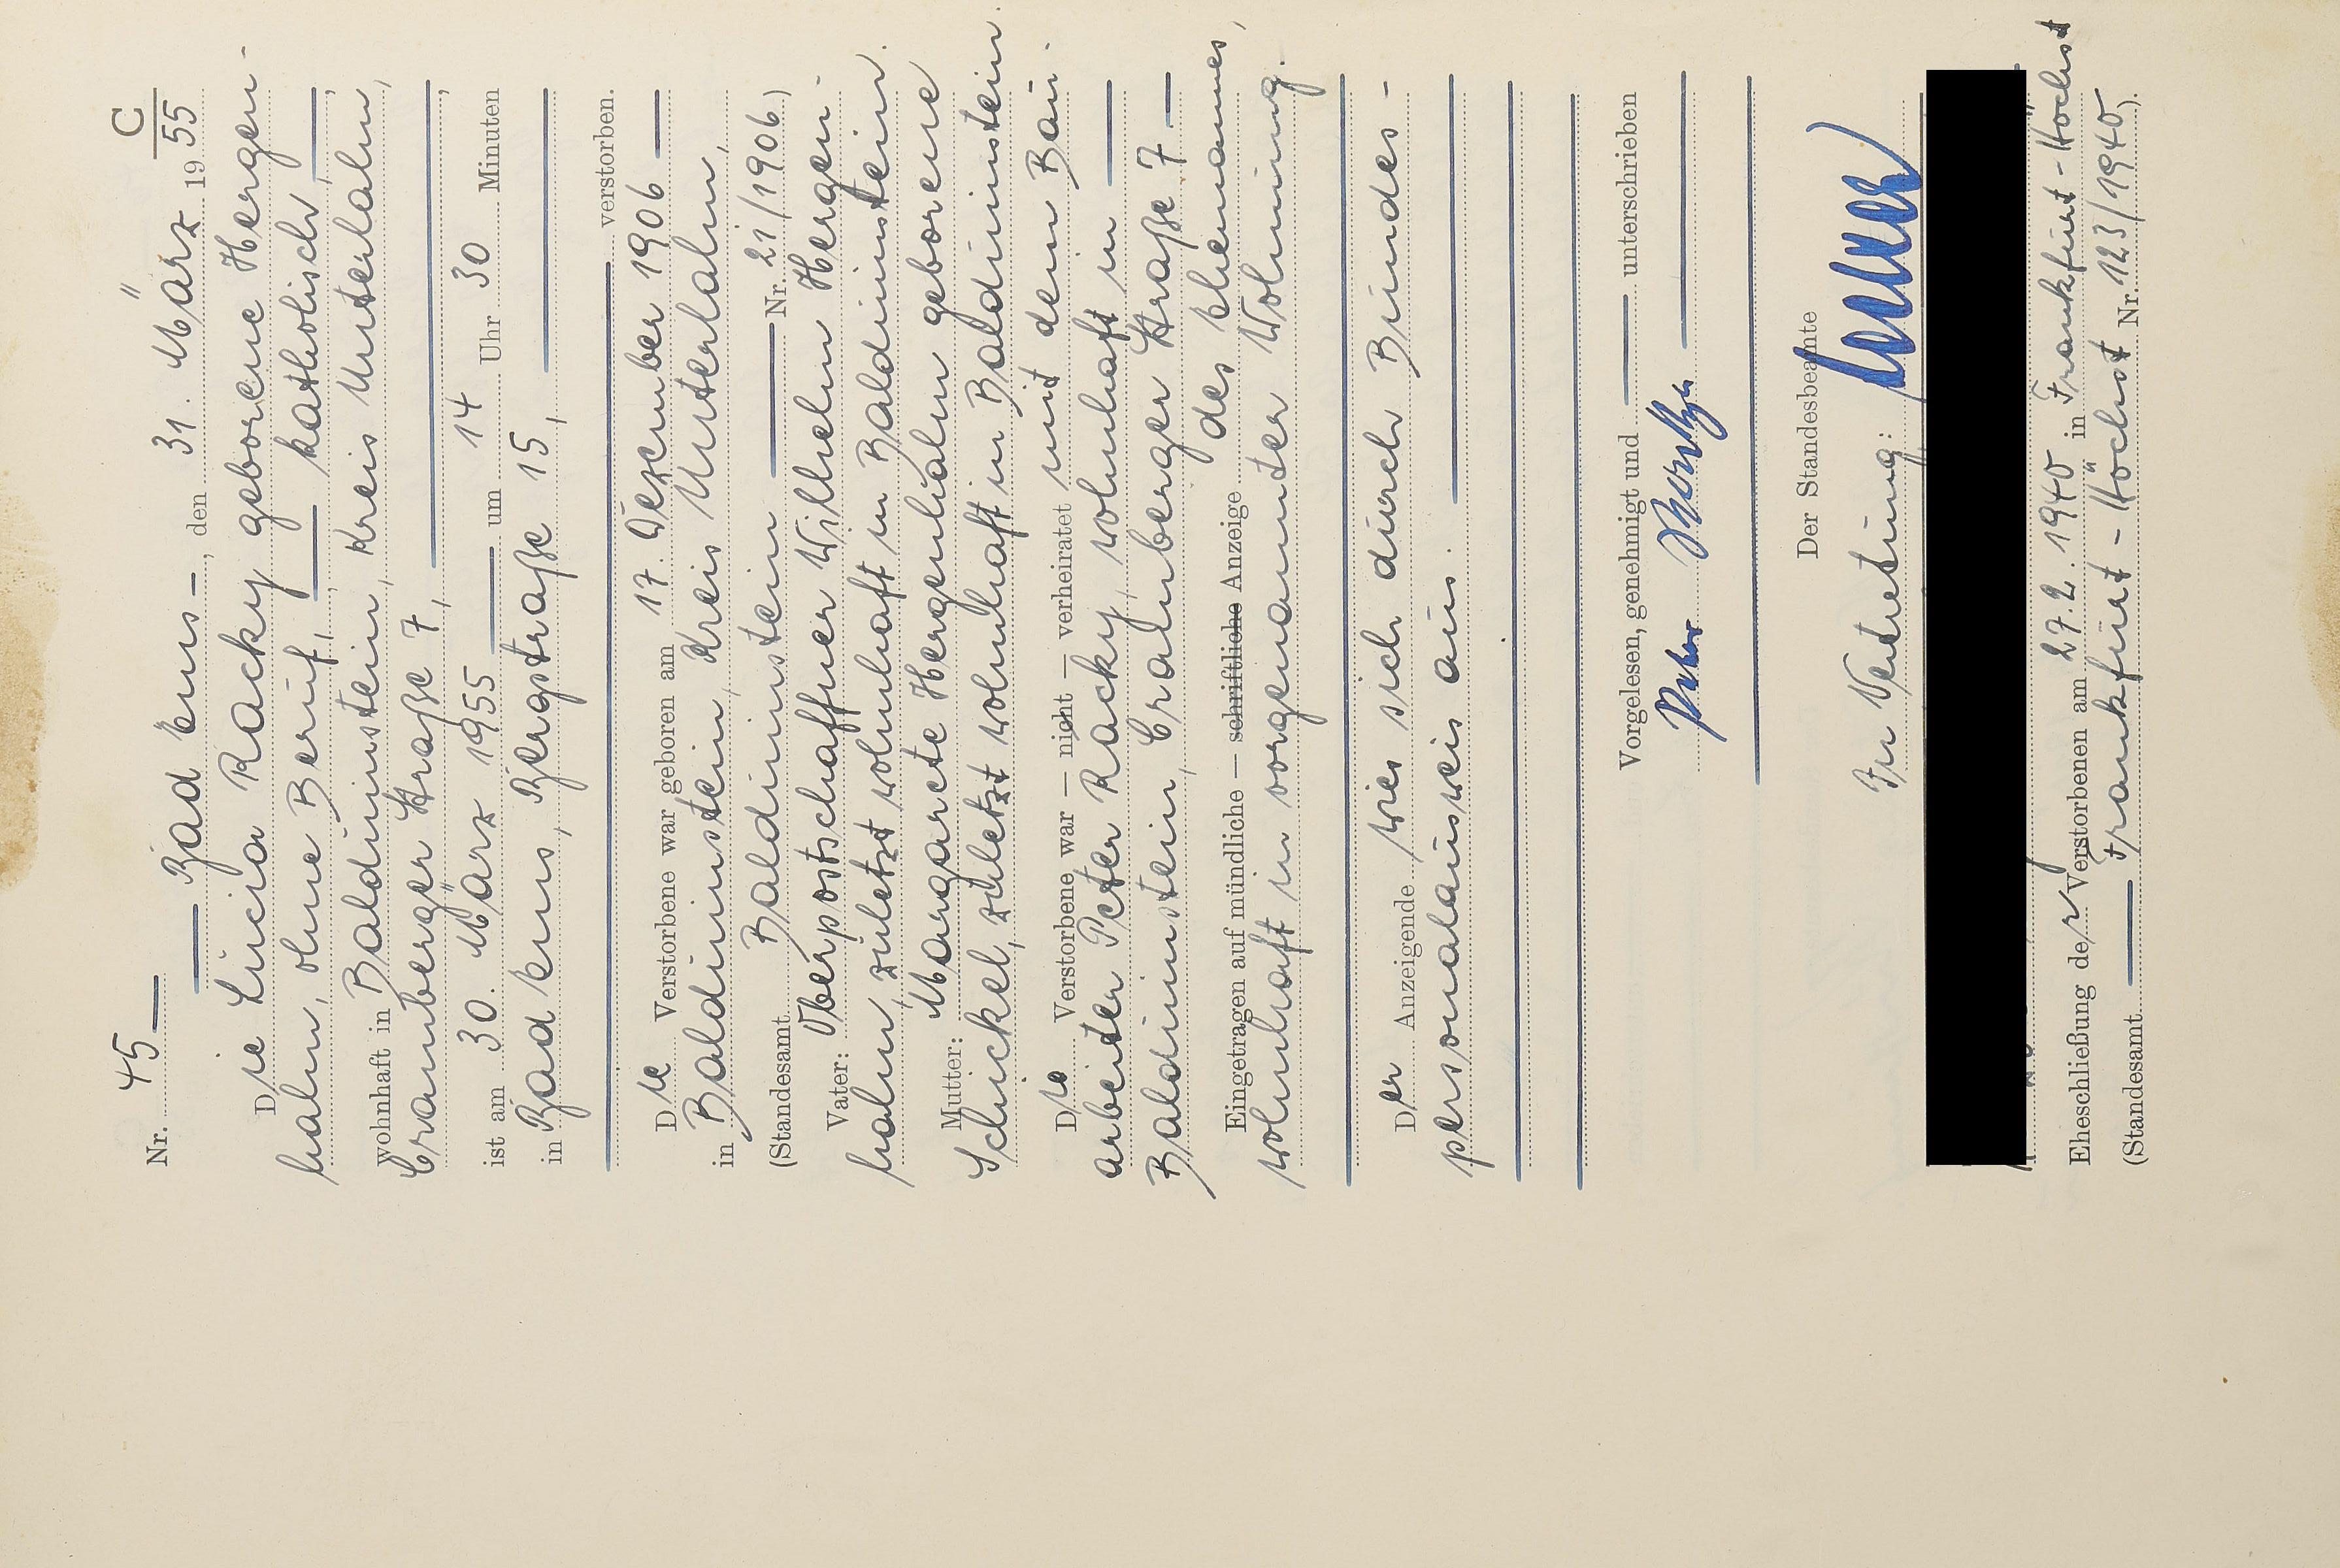 C
Nr. 45
Bad Ems —, den 31. März 19 55
Die Lucia Racky geborene Hergen-
hahn, ohne Beruf, — katholisch —,
wohnhaft in Balduinstein, Kreis Unterlahn,
Cramberger Straße 7, —,
ist am 30. März 1955 — um 14 Uhr 30 Minuten
in Bad Ems, Bergstraße 15,
verstorben.
Die Verstorbene war geboren am 17. Dezember 1906
in Balduinstein, Kreis Unterlahn,
(Standesamt Balduinstein — Nr. 21/1906)
Vater: Oberpostschaffner Wilhelm Hergen-
hahn, zuletzt wohnhaft in Balduinstein.
Mutter: Margarete Hergenhahn geborene
Schickel, zuletzt wohnhaft in Balduinstein.
Die Verstorbene war — nicht — verheiratet mit dem Bau-
arbeiter Peter Racky, wohnhaft in —
Balduinstein, Cramberger Straße 7. —
Eingetragen auf mündliche — schriftliche Anzeige des Ehemannes,
wohnhaft in vorgenannter Wohnung.
Der Anzeigende wies sich durch Bundes-
personalausweis aus.
Vorgelesen, genehmigt und — unterschrieben
Peter Racky
Der Standesbeamte
In Vertretung:
Eheschließung der Verstorbenen am 27.2.1940 in Frankfurt-Höchst
(Standesamt — Frankfurt-Höchst Nr. 123/1940).